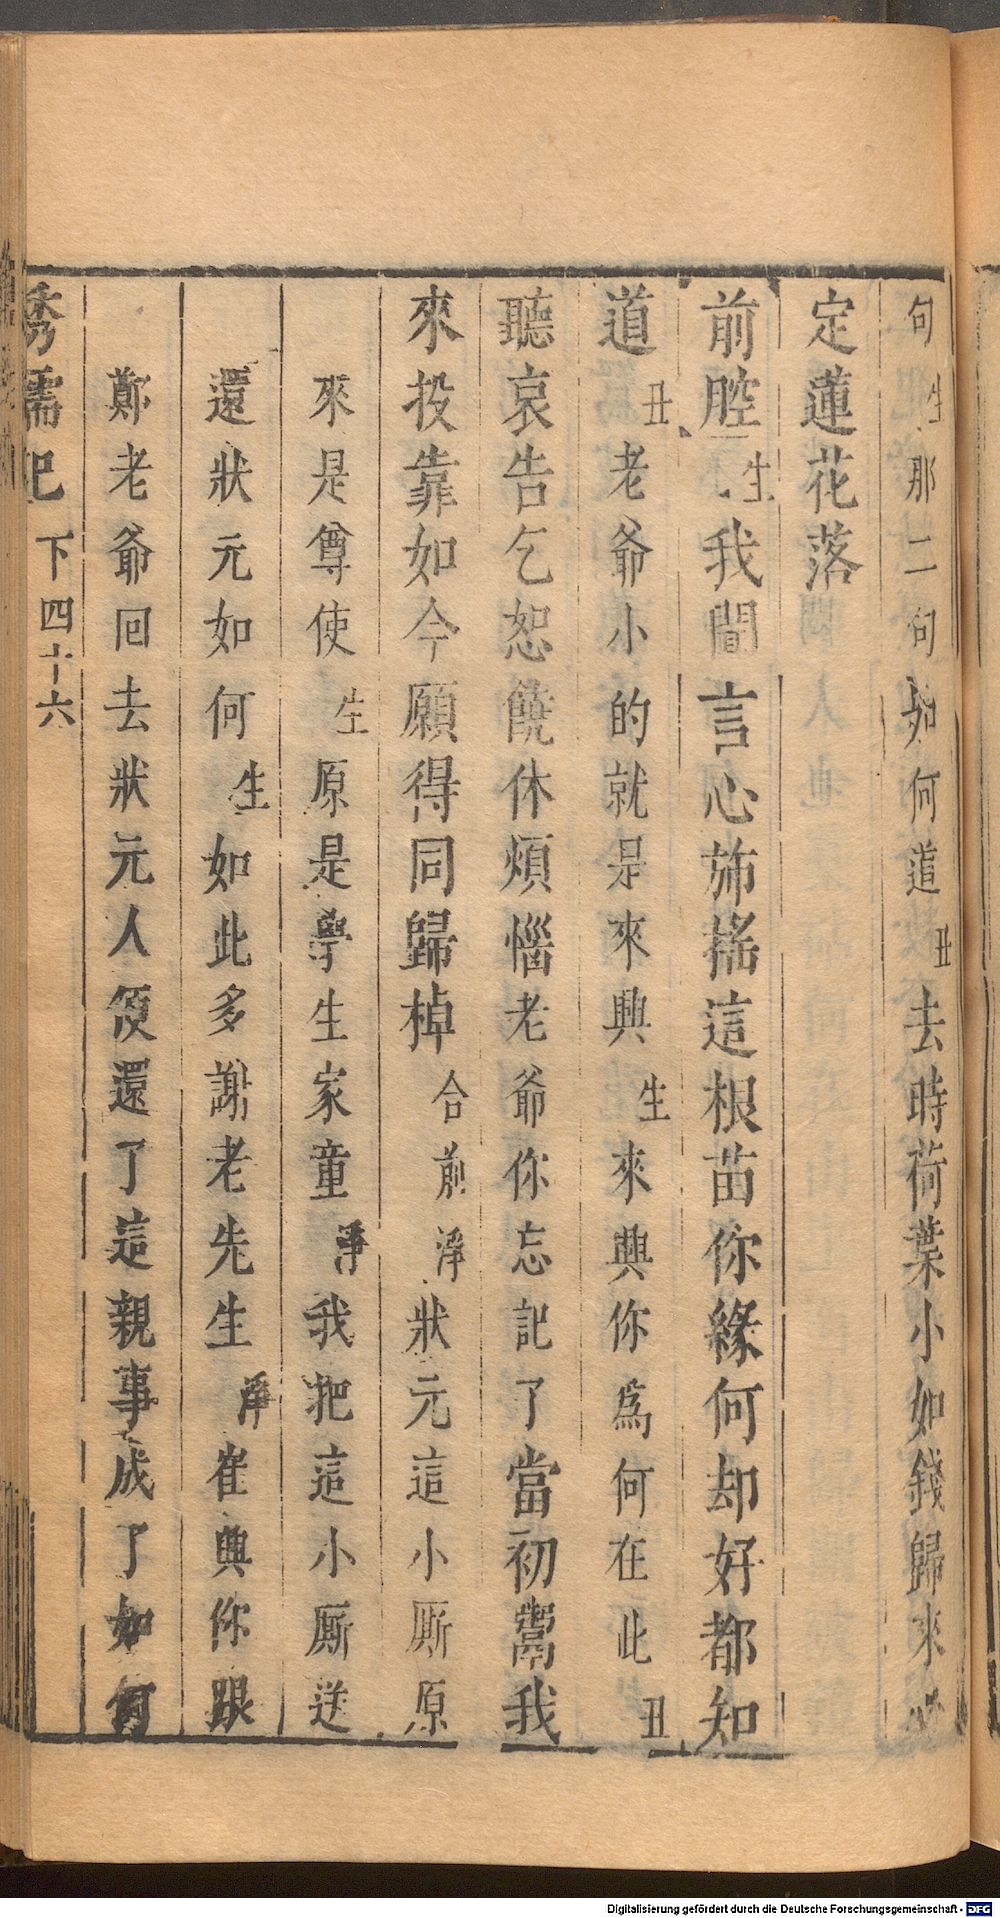 句生那二句如何道丑去時荷葉小如錢歸來必
定蓮花落
前腔生我聞言心旆搖這根苗你緣何却好都知
道丑老爺小的就是來興生來興你爲何在此丑
聽哀告乞恕饒休煩惱老爺你忘記了當初鬻我
來投靠如今願得同歸棹合前淨狀元這小厮原
來是尊使生原是學生家童淨我把這小厮送
還狀元如何生如此多謝老先生淨崔興你跟
鄭老爺回去狀元人便還了這親事成了如何
綉襦記 下 四十六
Digitalisierung gefördert durch die Deutsche Forschungsgemeinschaft - DFG